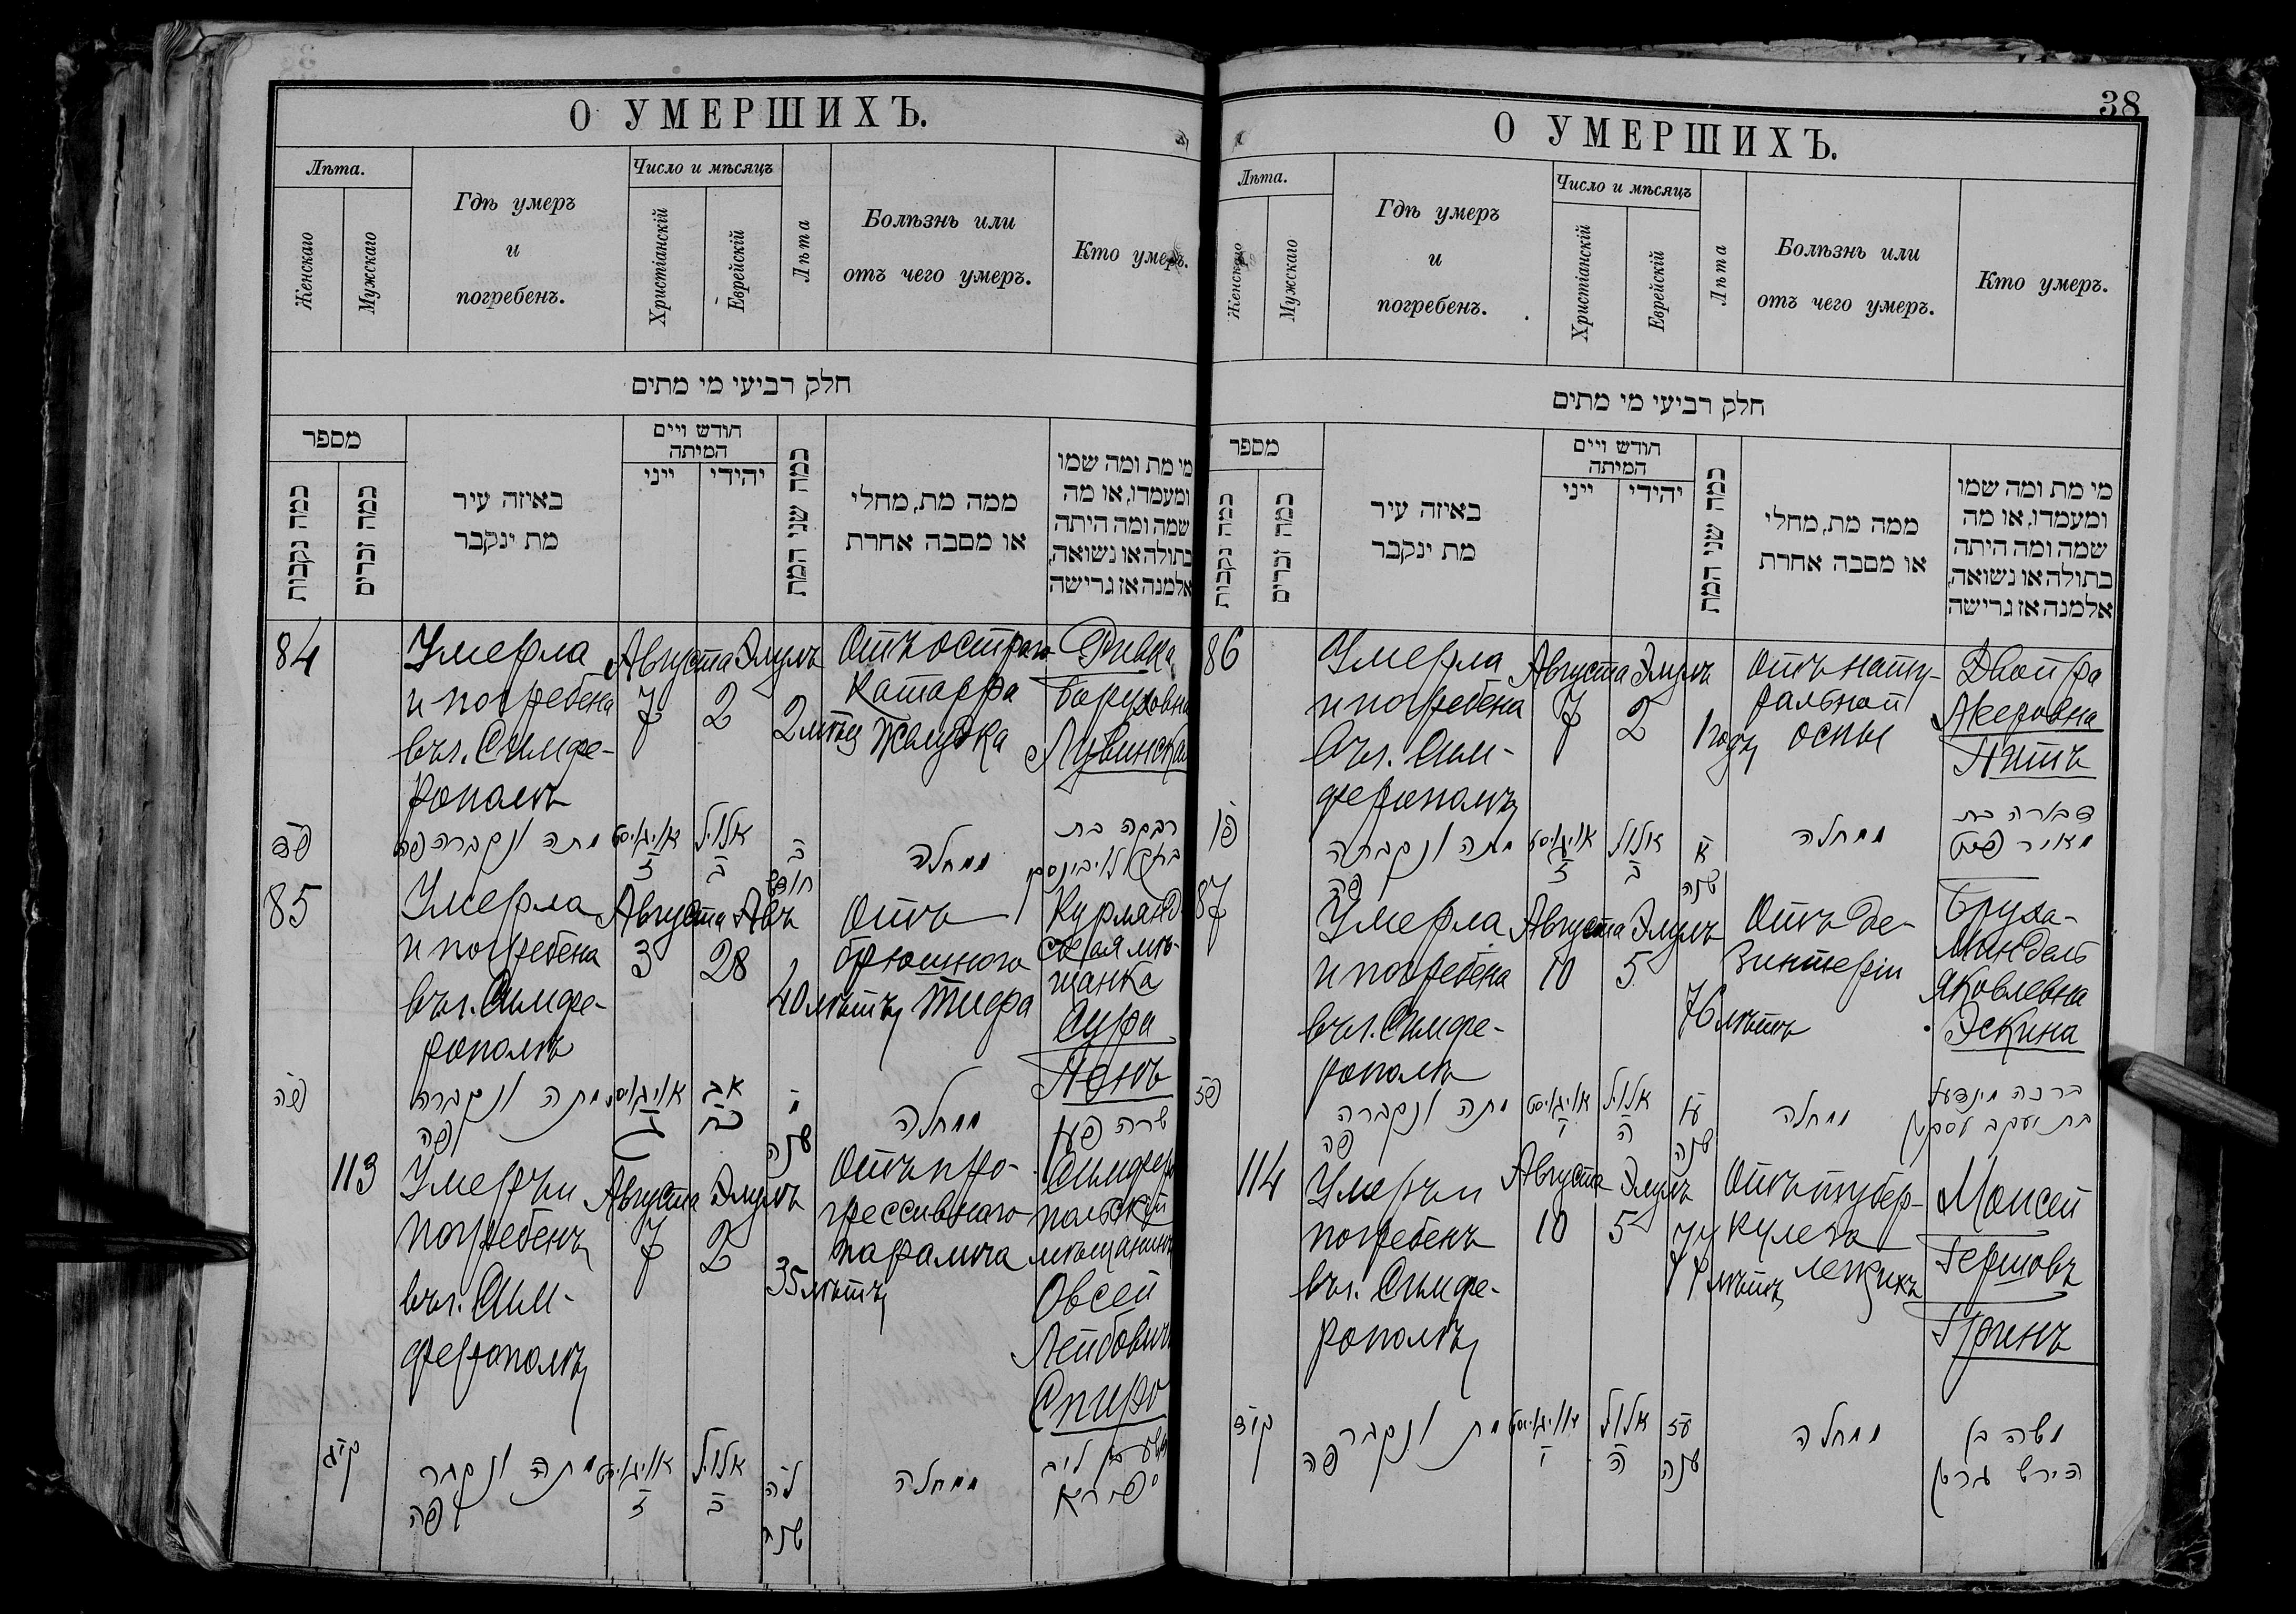 38
О УМЕРШИХЪ.
Лѣта.
Женскаго
Мужскаго
Гдѣ умеръ
и
погребенъ.
Число и мѣсяцъ
Христіанскій
Еврейскій
Лѣта
Болѣзнь или
отъ чего умеръ.
Кто умеръ.
חלק רביעי מי מתים
מספר
כמה נקבות
כמה זכרים
באיזה עיר
מת ינקבר
חודש ויים
המיתה
ייני
יהידי
כמה שני המת
ממה מת, מחלי
או מסבה אחרת
מי מת ומה שמו
ומעמדו, או מה
שמה ומה היתה
בתולה או נשואה,
אלמנה אז גרישה
84
Умерла
и погребена
въ г. Симфе-
рополѣ
Августа
7
Элулъ
2
2 мѣсц
Отъ остраго
катарра
желудка
Ривка
Баруховна
פד
מתה ונקברה פה
אויגוסט
ז
אלול
ב
ב
חודש
ממחלה
רבקה בת
85
Умерла
и погребена
въ г. Симфе-
рополѣ
Августа
3
Авъ
28
40 лѣтъ
Отъ
брюшного
тифа
Курлянд
ская мѣ-
щанка
Сура
פה
מתה ונקברה
פה
אויגוסט
ג
אב
כח
שנה
ממחלה
שרה
113
Умеръ и
погребенъ
въ г. Сим-
ферополѣ
Августа
7
Элулъ
2
35 лѣтъ
Отъ про-
грессивнаго
паралича
Симферо
польскій
мѣщанинъ
Овсей
Лейбовичъ
Спиро
קיג
מתה ונקבר
פה
אויגוסט
ז
אלול
ב
לה
שנה
ממחלה
לייב
О УМЕРШИХЪ.
Лѣта.
Женскаго
Мужскаго
Гдѣ умеръ
и
погребенъ.
Число и мѣсяцъ
Христіанскій
Еврейскій
Лѣта
Болѣзнь или
отъ чего умеръ.
Кто умеръ.
חלק רביעי מי מתים
מספר
כמה נקבות
כמה זכרים
באיזה עיר
מת ינקבר
חודש ויים
המיתה
ייני
יהידי
כמה שני המת
ממה מת, מחלי
או מסבה אחרת
מי מת ומה שמו
ומעמדו, או מה
שמה ומה היתה
בתולה או נשואה,
אלמנה אז גרישה
86
Умерла
и погребена
въ г. Сим-
ферополѣ
Августа
7
Элулъ
2
1 годъ
Отъ нату-
ральной
оспы
Двойра
פו
מתה ונקברה
פה
אויגוסט
ז
אלול
ב
א
שנה
ממחלה
דבארה בת
מאיר
87
Умерла
и погребена
въ г. Симфе-
рополѣ
Августа
10
Элулъ
5
76 лѣтъ
Отъ де-
зинтеріи
Бруха-
Миндель
Яковлевна
Эскина
פז
מתה ונקברה
פה
אויגוסט
י
אלול
ה
עו
שנה
ממחלה
ברכה מינדעל
בת יעקב עסקין
114
Умеръ и
погребенъ
въ г. Симфе-
рополѣ
Августа
10
Элулъ
5
77 лѣтъ
Отъ тубер-
кулеза
легкихъ
Моисей
Гершовъ
Гринъ
קיד
מת ונקבר
פה
אויגוסט
י
אלול
ה
עז
שנה
ממחלה
משה בן
הירש גרין